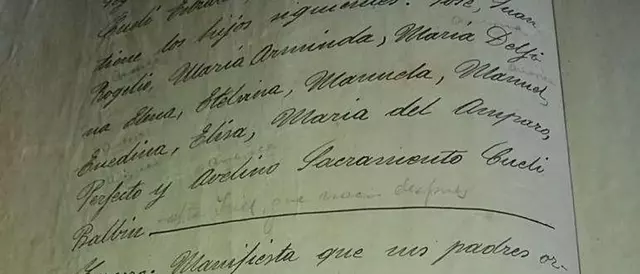 Cudi
tiene los hijos siguientes: José, Juan
Rogelio, María Arminda, María Delfi-
na Elena, Etelvina, Manuela, Manuel,
Enedina, Elisa, María del Amparo,
Perfecto y Avelino Sacramento Cueli
Balbin
que nació después
Manifiesta que sus padres or-